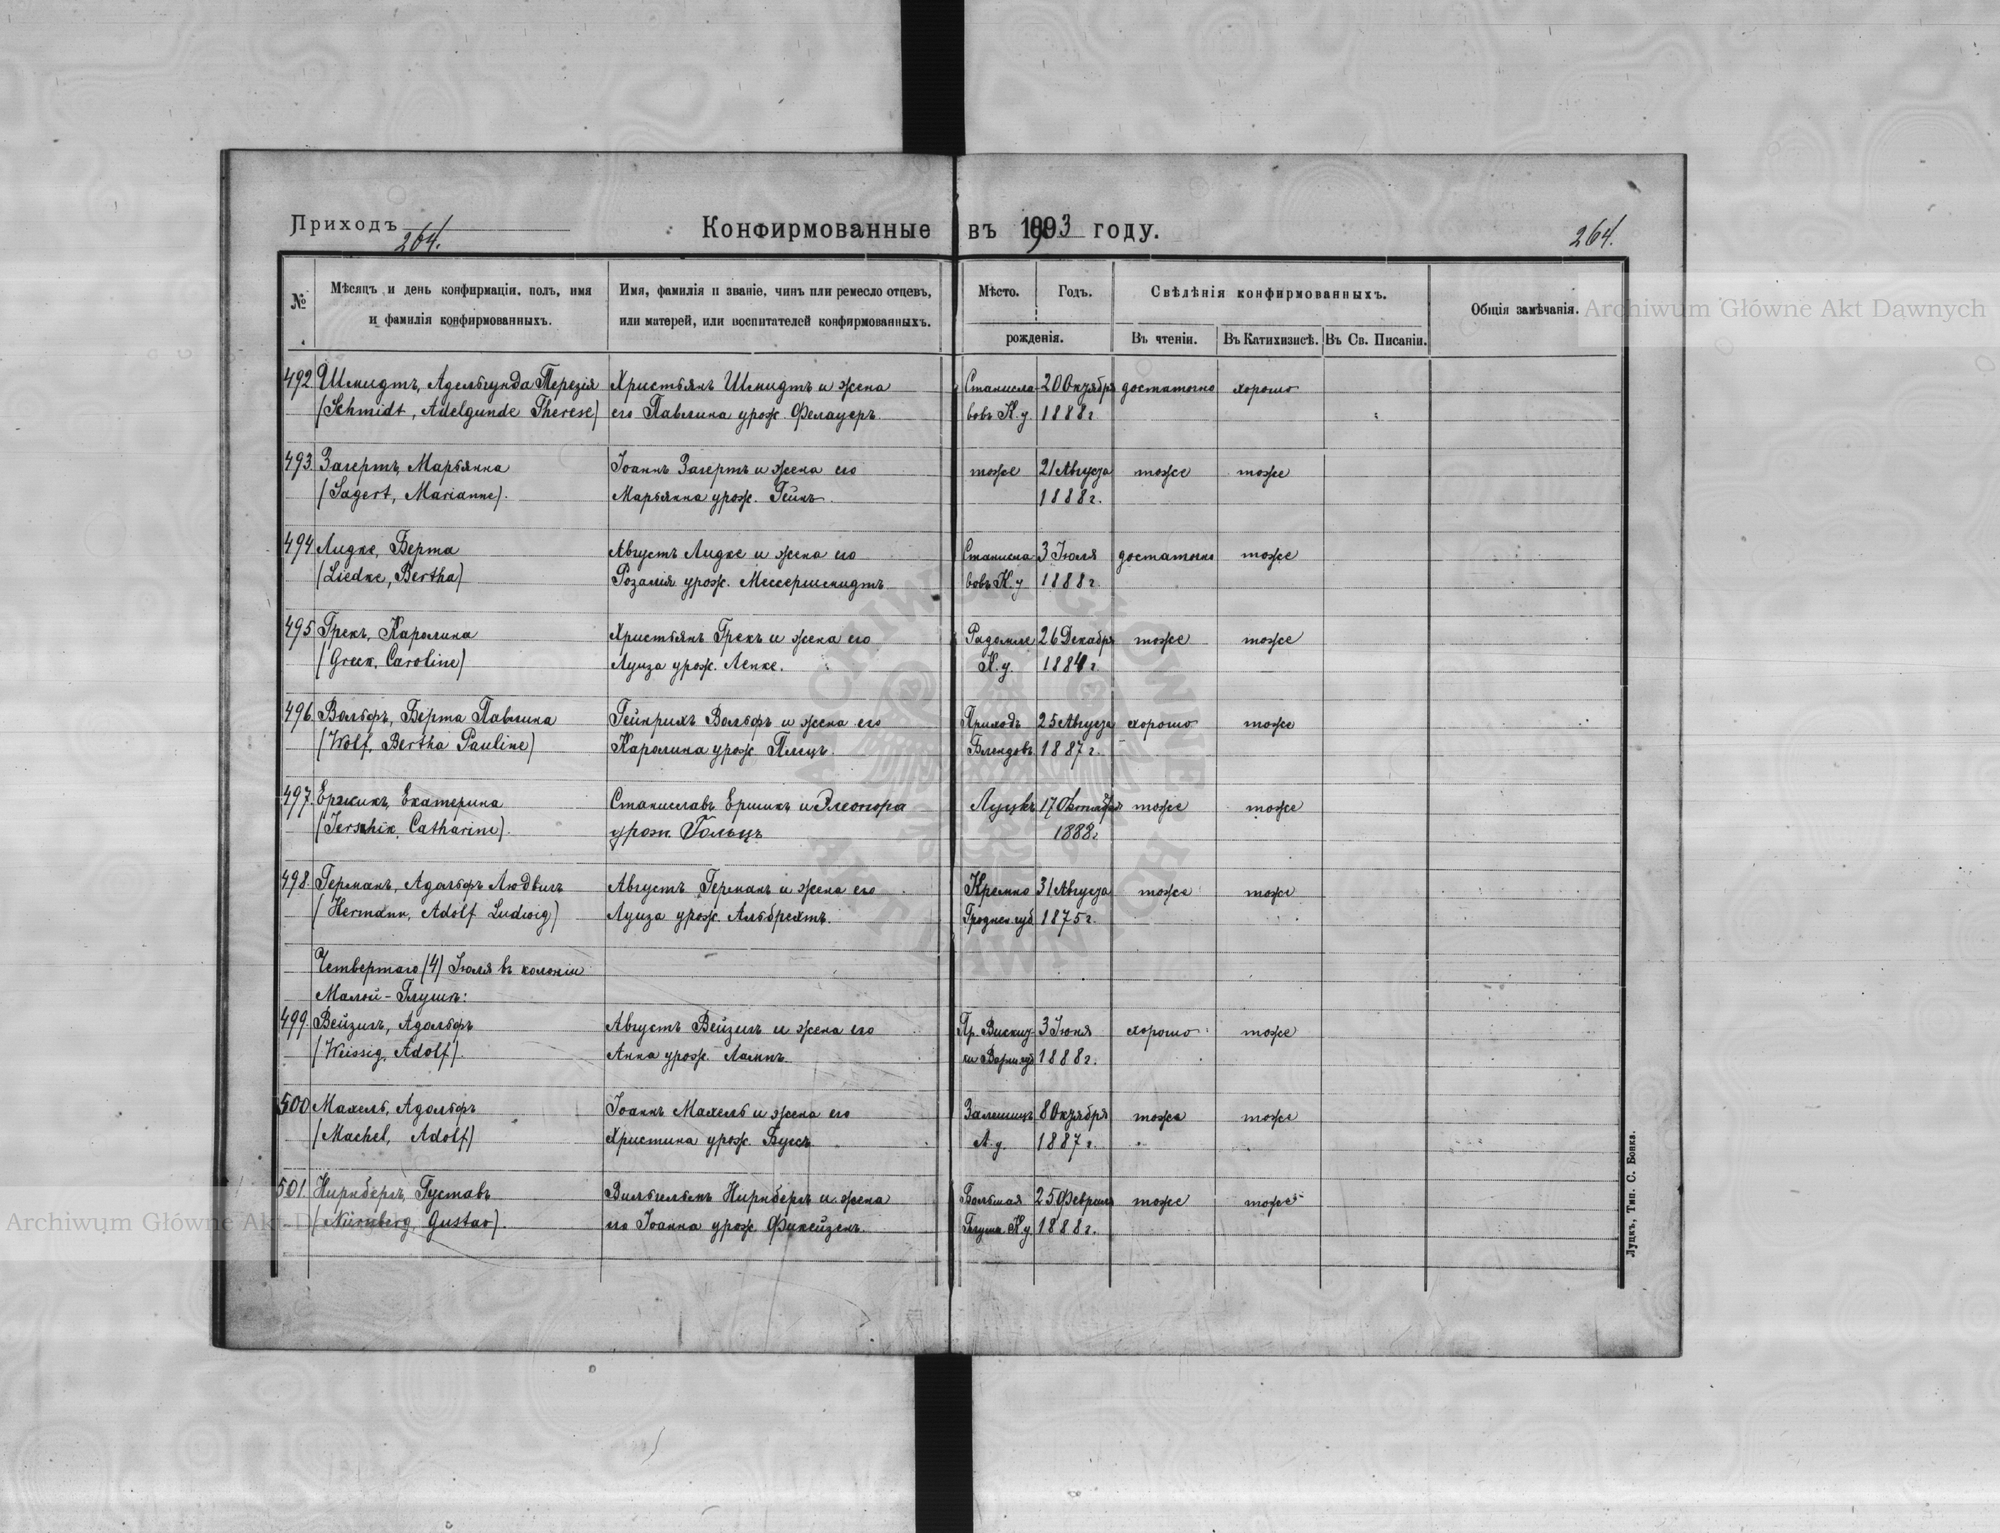 Приходъ 264.
Конфирмованные въ 1903 году.
264.
№
Мѣсяцъ и день конфирмаціи, полъ, имя
и фамилія конфирмованныхъ.
Имя, фамилія и званіе, чинъ или ремесло отцевъ,
или матерей, или воспитателей конфирмованныхъ.
Мѣсто.
Годъ.
рожденія.
Свѣдѣнія конфирмованныхъ.
Въ чтеніи.
Въ Катихизисѣ.
Въ Св. Писаніи.
Общія замѣчанія.
492. Шмидтъ, Адельгунда Терезія Христьянъ Шмидтъ и жена Станисла- 20 Октября достаточно хорошо
(Schmidt, Adelgunde Therese) его Павлина урож. Флауеръ. вовъ К. у. 1888 г.
493. Загертъ, Марьянна Іоаннъ Загертъ и жена его тоже 21 Августа тоже тоже
(Sagert, Marianne). Марьянна урож. Гейнъ. 1888 г.
494. Лидке, Берта Августъ Лидке и жена его Станисла- 3 Іюля достаточно тоже
(Liedke, Bertha) Розалія урож. Мессершмидтъ вовъ К. у. 1888 г.
495. Грекъ, Каролина Христьянъ Грекъ и жена его Радомле 26 Декабря тоже тоже
(Greck, Caroline) Луиза урож. Лепке. К. у. 1884 г.
496. Вольфъ, Берта Павлина Гейнрихъ Вольфъ и жена его Приходъ 25 Августа хорошо тоже
(Wolf, Bertha Pauline) Каролина урож. Плецъ. Блендовъ 1887 г.
497. Ержикъ, Екатерина Станиславъ Ершикъ и Элеонора Луцкъ 17 Октября тоже тоже
(Jerschik, Catharine). урож. Гольцъ 1888 г.
498. Германъ, Адольфъ Людвигъ Августъ Германъ и жена его Кремно 31 Августа тоже тоже
(Hermann, Adolf Ludwig) Луиза урож. Альбрехтъ. Гроднен. губ. 1875 г.
Четвертаго (4) Іюля въ колоніи
Малой-Глушъ:
499. Вейзигъ, Адольфъ Августъ Вейзигъ и жена его Пр. 3 Іюня хорошо тоже
(Weissig, Adolf). Анна урож. Лампъ. 1888 г.
500. Махель, Адольфъ Іоаннъ Махель и жена его Залешицъ 8 Октября тоже тоже
(Machel, Adolf) Христина урож. Буссъ Л. у. 1887 г.
501. Нирнбергъ, Густавъ Вильгельмъ Нирнбергъ и жена Большая 25 Февраля тоже тоже
(Nürnberg, Gustav). его Іоанна урож. Фикейзенъ. Глуша К. у. 1888 г.
Луцкъ, Тип. С. Бонка.
Archiwum Główne Akt Dawnych
Archiwum Główne Akt Dawnych
ARCHIWUM GŁÓWNE AKT DAWNYCH